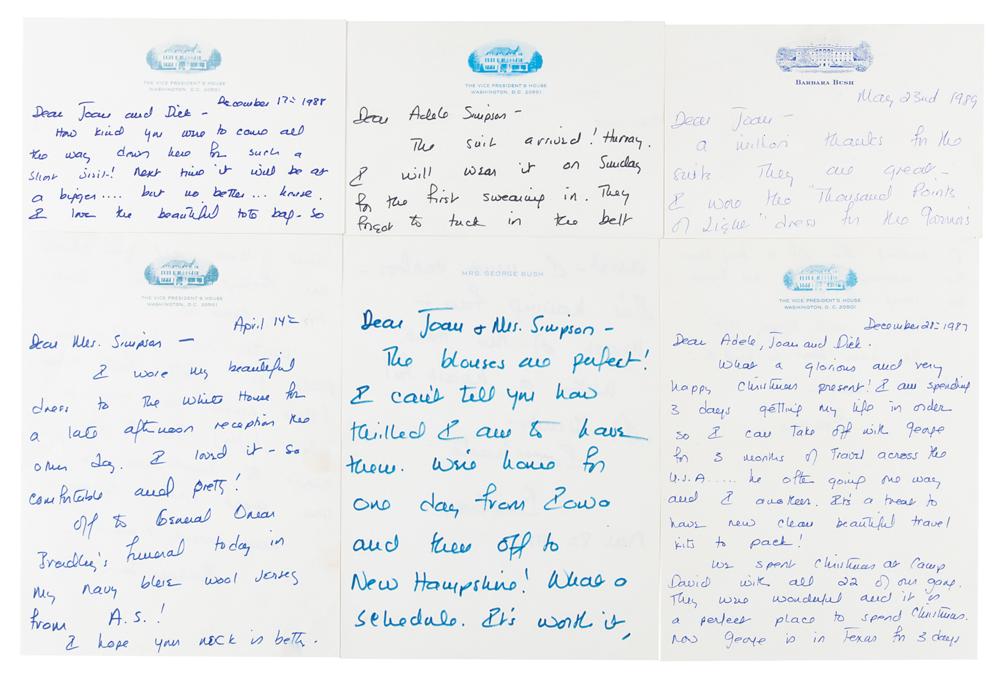 THE VICE PRESIDENT'S HOUSE
WASHINGTON, D.C. 20501
December 17th 1988
Dear Joan and Dick -
How kind you were to come all
the way down here for such a
short visit! Next time it will be at
a bigger.... but no better... house.
I love the beautiful tote bag - so
THE VICE PRESIDENT'S HOUSE
WASHINGTON, D.C. 20501
Dear Adele Simpson -
The suit arrived! Hurray.
I will wear it on Sunday
for the first swearing in. They
forgot to tuck in the belt
BARBARA BUSH
May 23rd 1989
Dear Joan -
a million thanks for the
suits They are great -
I wore the "Thousand Points
of Light" dress for the Governor's
THE VICE PRESIDENT'S HOUSE
WASHINGTON, D.C. 20501
April 14th
Dear Mrs. Simpson -
I wore my beautiful
dress to the White House for
a late afternoon reception the
other day. I loved it - so
comfortable and pretty!
Off to General Omar
Bradley's funeral today in
my navy blue wool jersey
from A.S.!
I hope your neck is better.
MRS. GEORGE BUSH
Dear Joan & Mrs. Simpson -
The blouses are perfect!
I can't tell you how
thrilled I am to have
them. We're home for
one day from Iowa
and then off to
New Hampshire! What a
schedule. It's worth it,
THE VICE PRESIDENT'S HOUSE
WASHINGTON, D.C. 20501
December 28th 1987
Dear Adele, Joan and Dick.
What a glorious and very
happy Christmas present! I am spending
3 days getting my life in order
so I can take off with George
for 3 months of travel across the
U.S.A..... he often going one way
and I another. It's a treat to
have new clean beautiful travel
kits to pack!
We spent Christmas at Camp
David with all 22 of our gang.
They were wonderful and it is
a perfect place to spend Christmas.
Now George is in Texas for 3 days